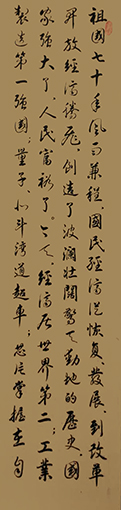 祖国七十年风雨兼程,国民经济从恢复、发展,到改革
开放经济腾飞,创造了波澜壮阔惊天动地的历史,国
家强大了,人民富裕了。今天,经济居世界第二;工业
制造第一强国;量子北斗弯道超车 芯片掌握在自